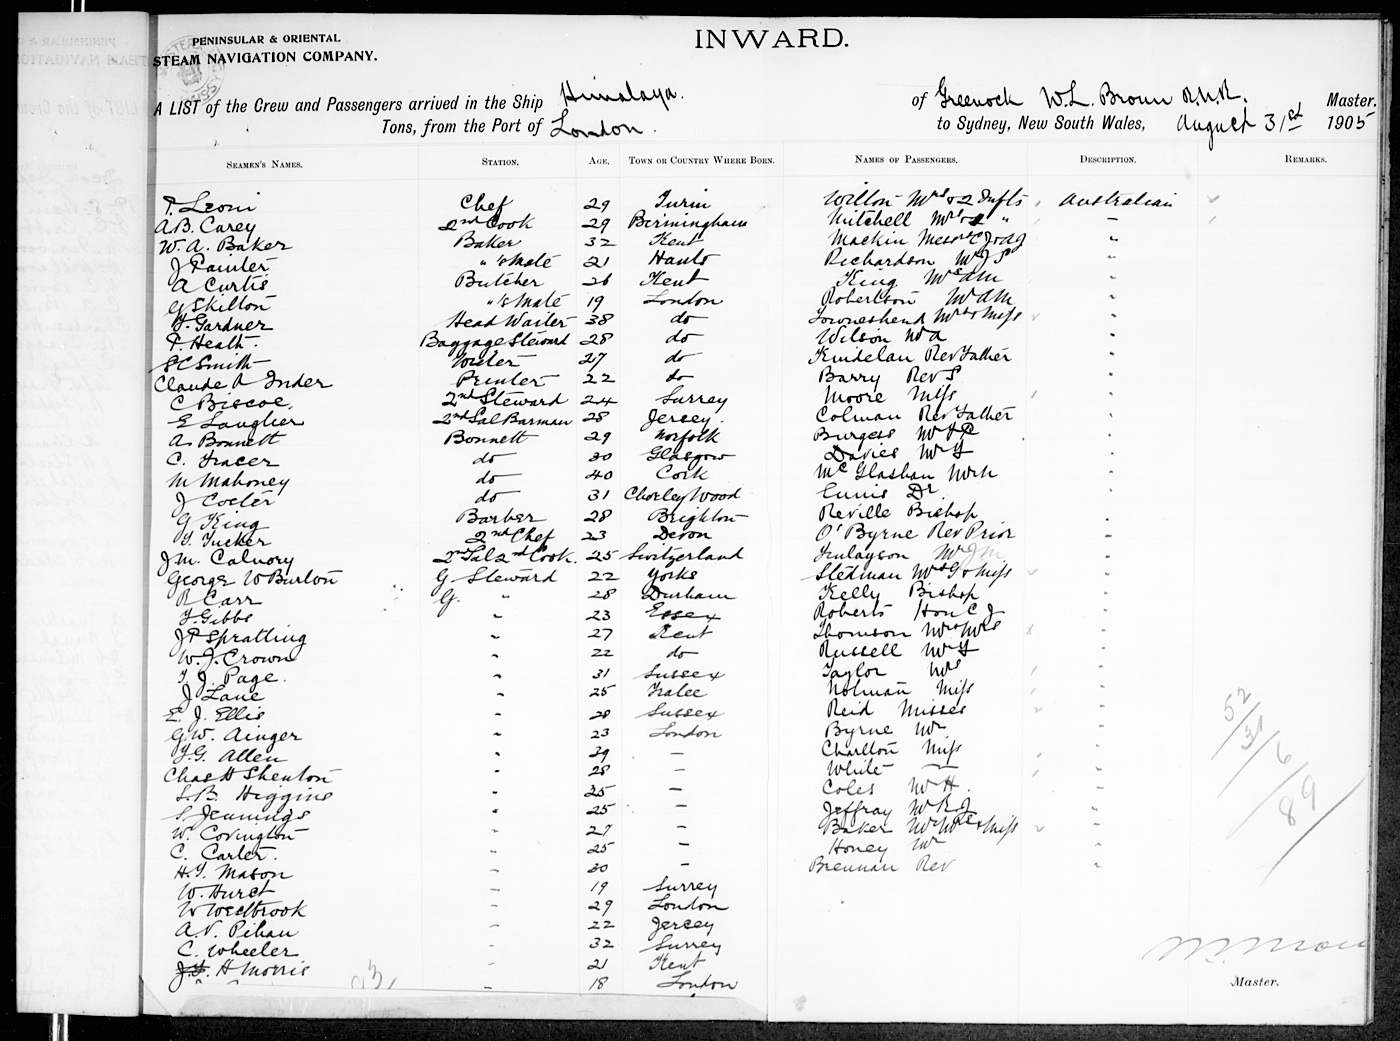 PENINSULAR & ORIENTAL
STEAM NAVIGATION COMPANY.
INWARD.
A LIST of the Crew and Passengers arrived in the Ship Himalaya. of Greenock W.L. Broun R.N.R. Master.
Tons, from the Port of London. to Sydney, New South Wales, August 31st 1905
SEAMEN'S NAMES. STATION. AGE. TOWN OR COUNTRY WHERE BORN. NAMES OF PASSENGERS. DESCRIPTION. REMARKS.
F. Leoni Chef 29 Turin Willon Mrs & 2 Australian
A.B. Carey 2nd Cook 29 Birmingham Mitchell Mrs & 2 "
W. A. Baker Baker 32 Kent Mackin "
J Painter " 's Mate 21 Hants Richardson "
A Curtis Butcher 26 Kent King "
G Skilton " 's Mate 19 London Robertson Mr AM "
F. Gardner Head Waiter 38 do Towneshend Mrs & Miss "
F. Heath. Baggage Steward 28 do Wilson Mr A "
S C Smith Writer 27 do Kindelan Rev Father "
Claude A Inder Printer 22 do Barry Rev S "
C Biscoe. 2nd Steward 24 Surrey Moore Miss "
E Laugher 2nd Sal Barman 28 Jersey. Colman Rev Father "
A. Bonnett Bonnett 29 Norfolk Burgess "
C. Tracer do 30 Glasgow Davies Mr "
M Mahoney do 40 Cork McGlashan "
J Coster do 31 Chorley Wood Ennis Dr. "
G King Barber 28 Brighton Reville Bishop
T. Tucker 2nd Chef 23 Devon O'Byrne Rev Prior "
J.M. Calvory 2nd Sal 2nd Cook. 25 Switzerland Finlayson Mr J M "
George W Burton G Steward 22 Yorks Stedman Mrs & Miss "
R Carr G. " 28 Durham Kelly Bishop "
F. Gibbs " 23 Essex Roberts Hon C J "
J P Spratling " 27 Kent Thomson Mr & Mrs "
W. J. Crown " 22 do Russell Mr "
T. J. Page. " 31 Sussex Taylor Mrs "
J Lane " 25 Tralee Nolman Miss "
E. J. Ellis " 28 Sussex Reid Misses "
G.W. Ainger " 23 London Byrne Mr "
F.G. Allen " 39 — Charlton Miss "
Chas H Shenton " 28 — White — "
S.B. Higgins " 25 — Coles Mr H. "
S. Jennings " 25 — Jeffray Mr R J "
W. Covington " 27 — Baker Mr Mrs & Miss "
C. Carter. " 25 — Honey Mr "
H.T. Mason " 30 — Brennan Rev "
W. Hurst " 19 Surrey
W Westbrook " 29 London
A.V. Pihan " 22 Jersey
C. Wheeler " 32 Surrey
H Morris " 21 Kent
" 18 London
52/31/6/89
Master.